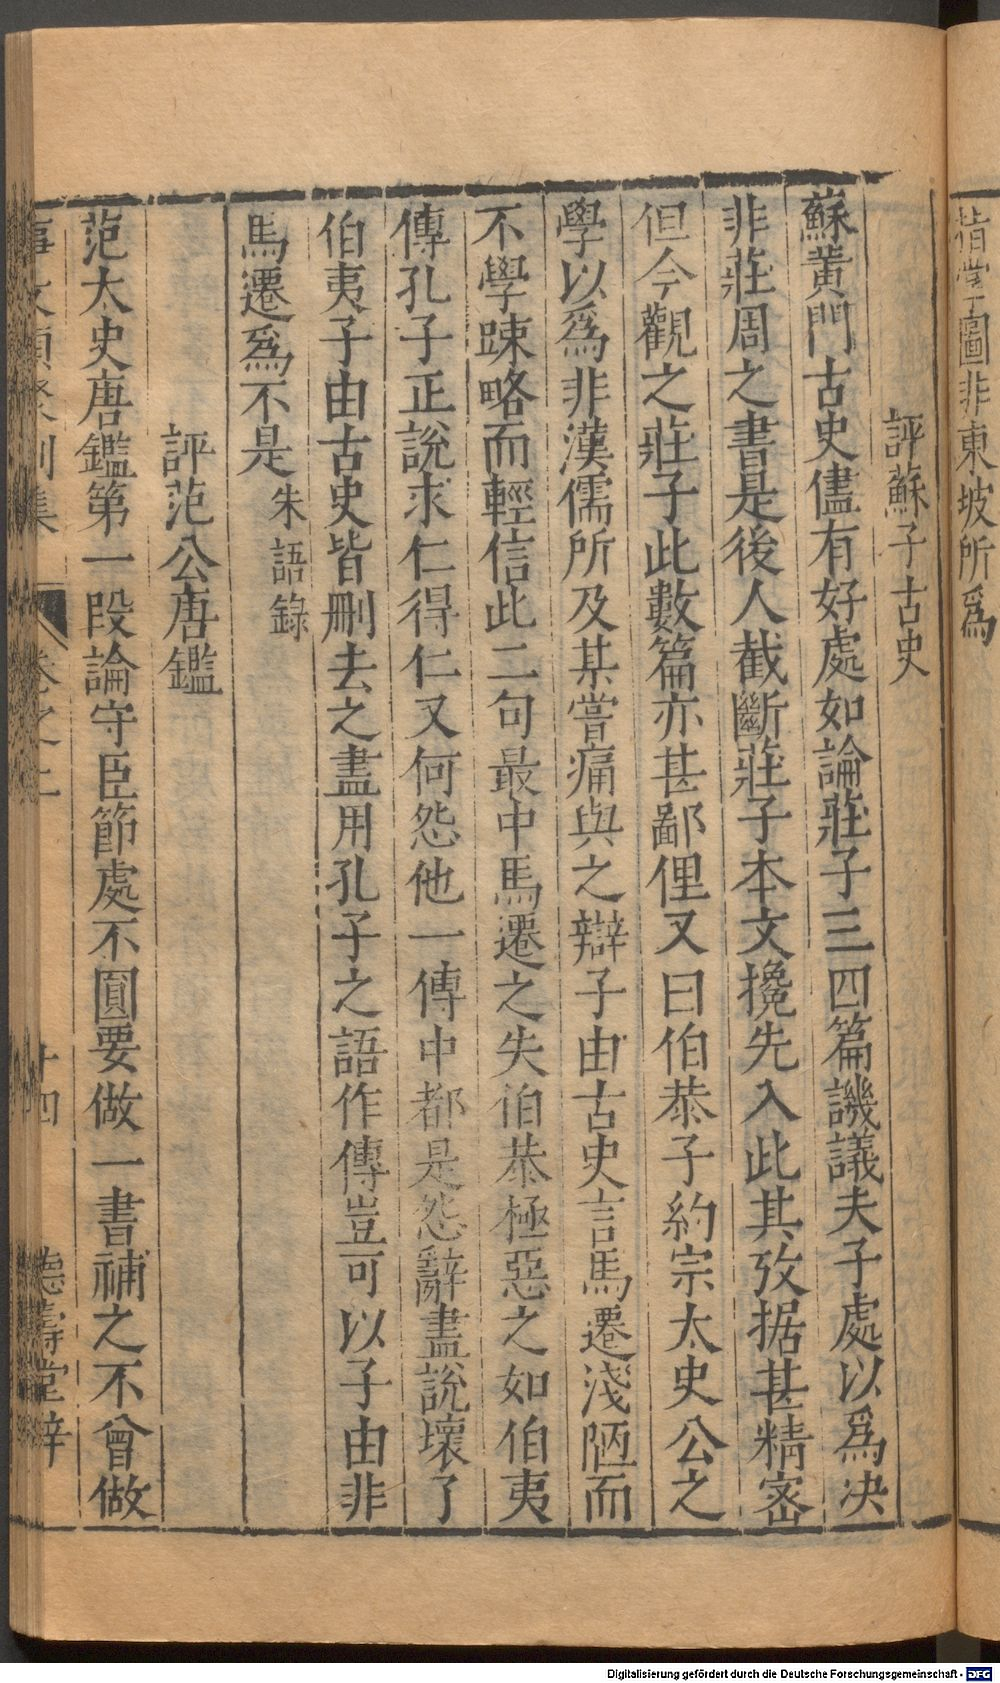 指掌圖非東坡所爲
評蘇子古史
蘇黃門古史儘有好處如論莊子三四篇譏議夫子處以爲决
非莊周之書是後人截斷莊子本文攙先入此其攷据甚精宻
但今觀之莊子此數篇亦甚鄙俚又曰伯恭子約宗太史公之
學以爲非漢儒所及某嘗痛與之辯子由古史言馬遷淺陋而
不學踈略而輕信此二句最中馬遷之失伯恭極惡之如伯夷
傳孔子正說求仁得仁又何怨他一傳中都是怨辭盡說壞了
伯夷子由古史皆刪去之盡用孔子之語作傳豈可以子由非
馬遷爲不是朱語錄
評范公唐鑑
范太史唐鑑第一段論守臣節處不圓要做一書補之不曾做
事文類聚別集 卷之二 十四 德壽堂梓
Digitalisierung gefördert durch die Deutsche Forschungsgemeinschaft - DFG